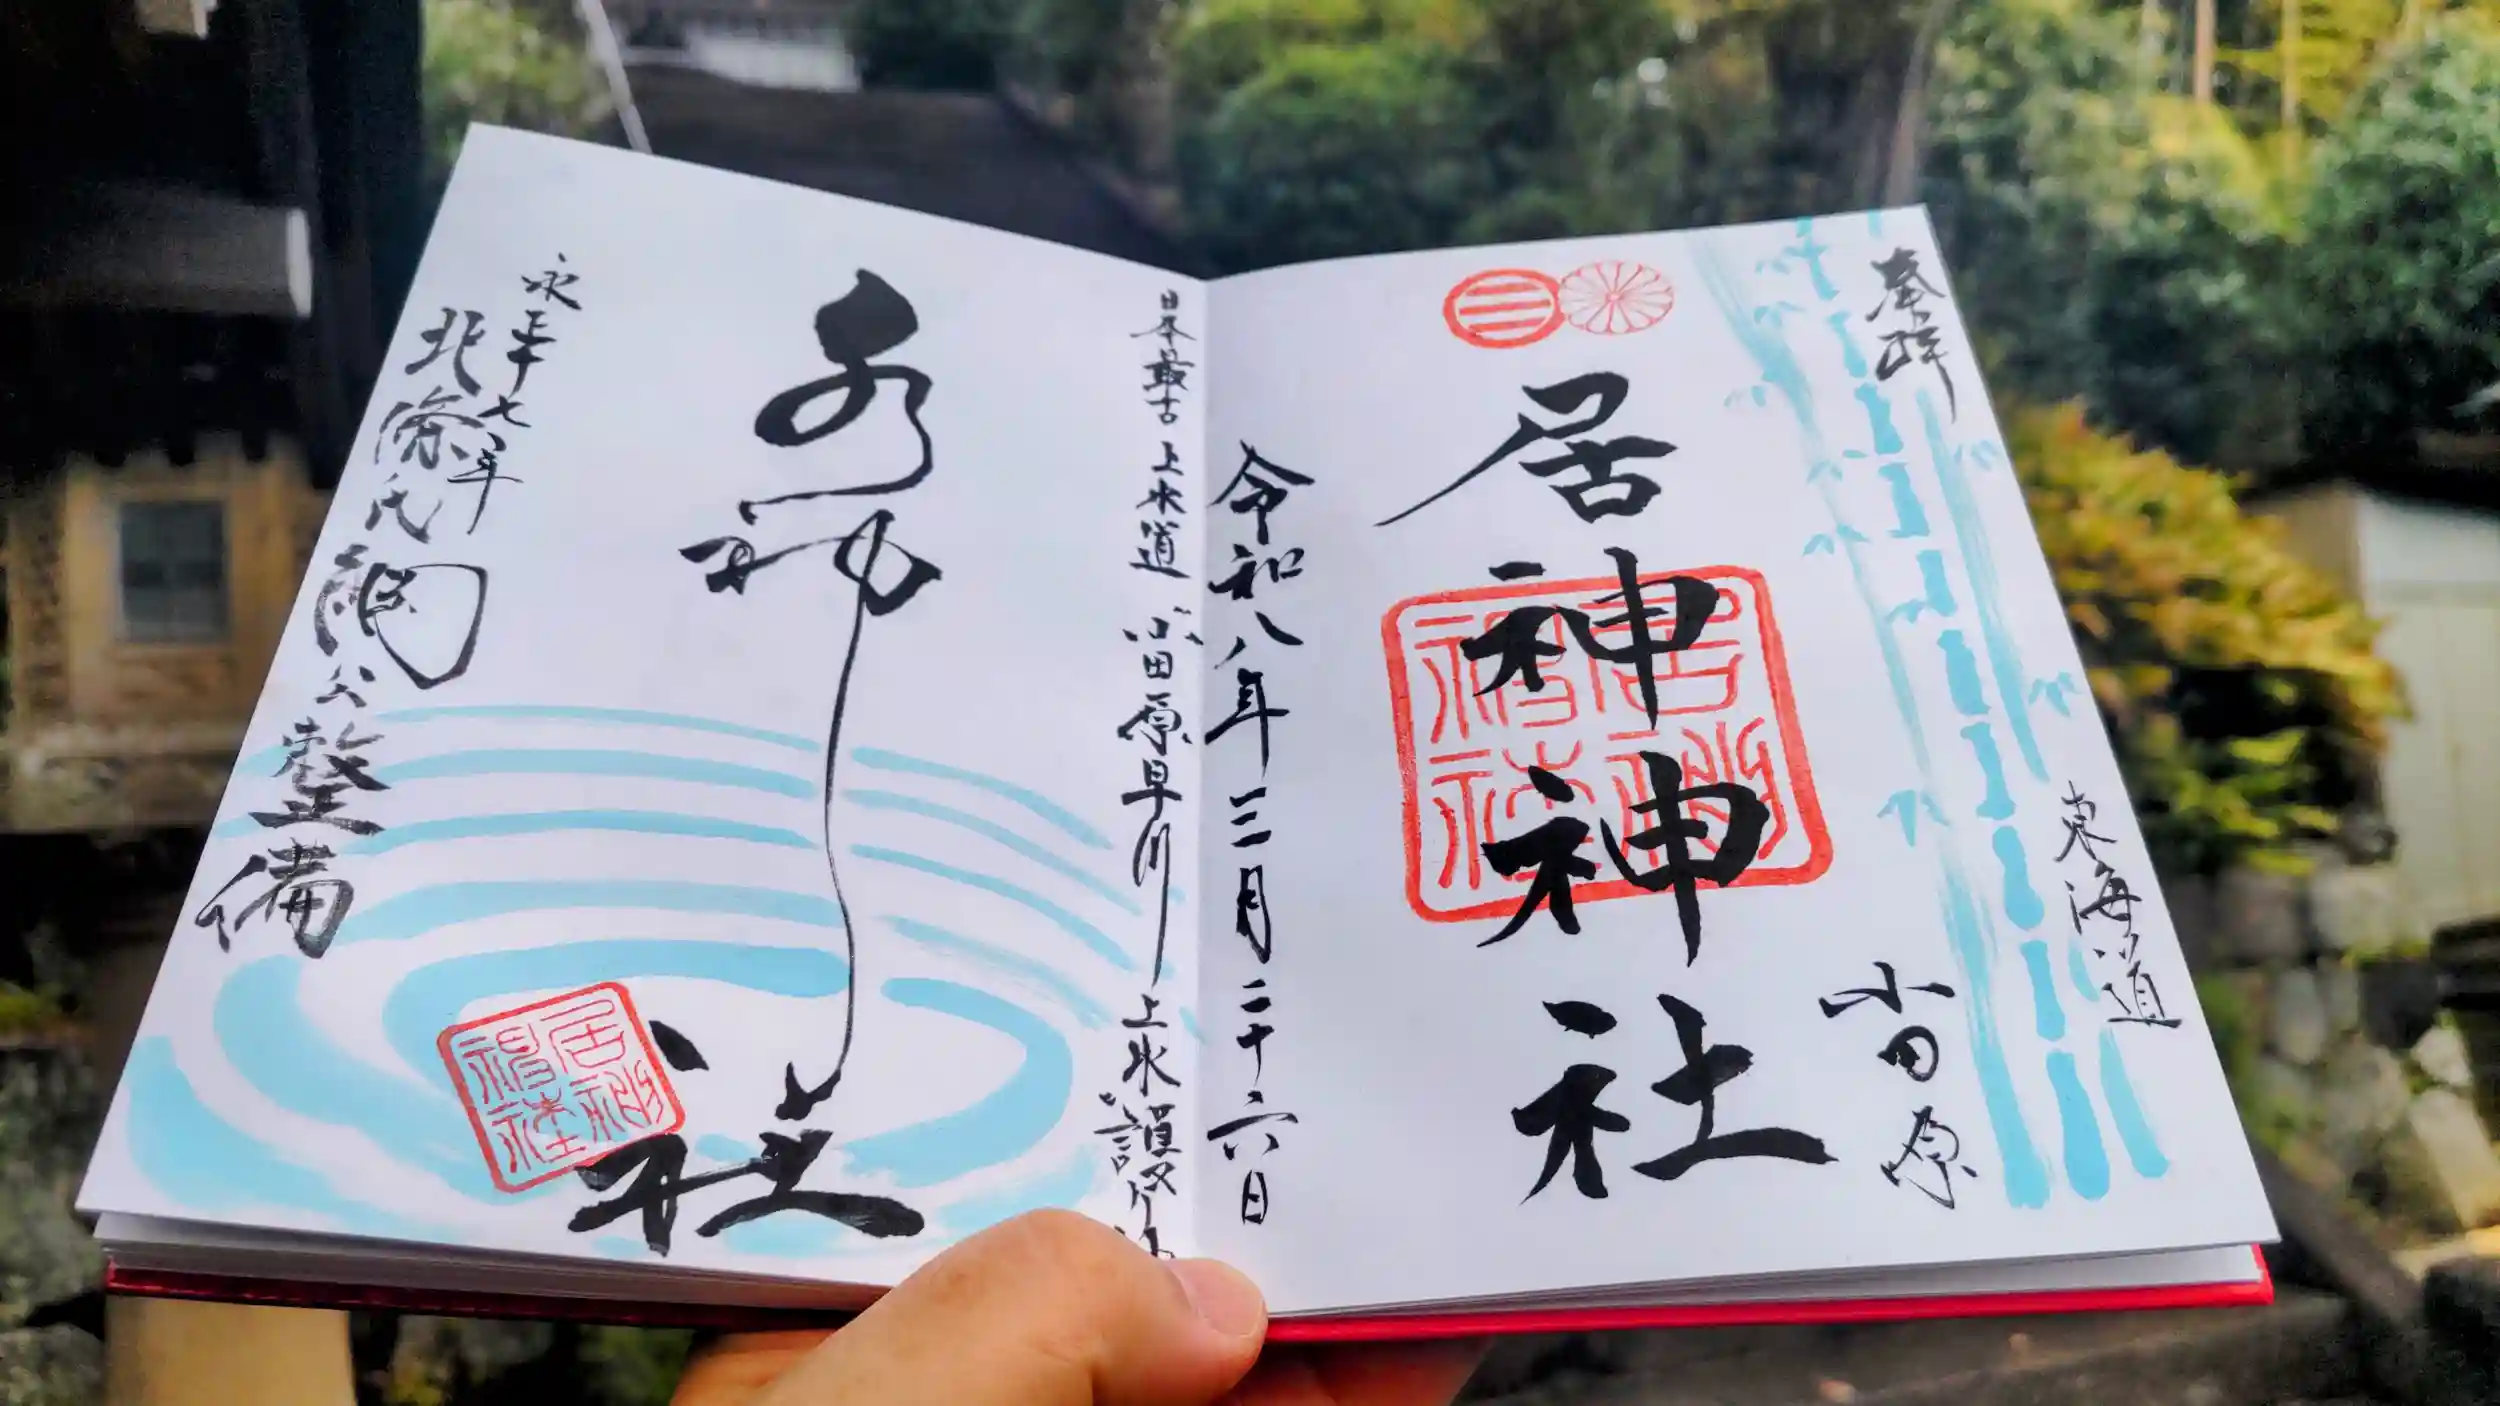 奉拝
東海道
小田原
居神神社
居神神社
令和八年三月二十六日
日本最古上水道 小田原早川上水護り神
水神社
居神神社
永正十七年
北條氏綱公整備